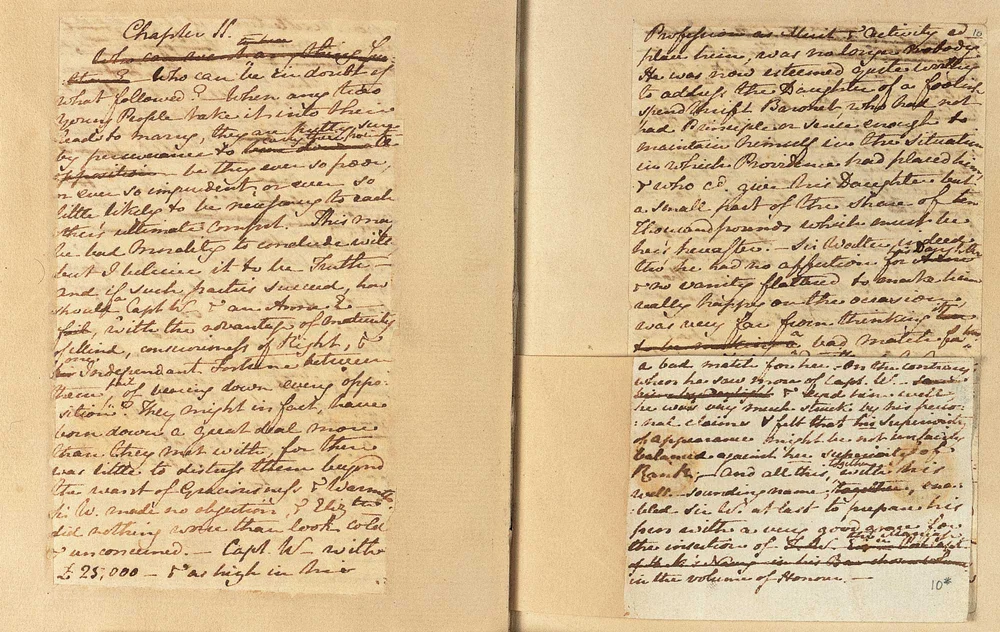 Chapter 11.
to be
Who can
Who can be in doubt of
what followed? – When any two
Young People take it into their
heads to marry, they are pretty sure
by perseverance to carry their point
opposition – be they ever so poor,
or ever so imprudent, or ever so
little likely to be necessary to each
other's ultimate comfort. This may
be bad Morality to conclude with,
but I believe it to be Truth –
and if such parties succeed, how
should a Capt. W– & an Anne E–
with the advantage of Maturity
of Mind, consciousness of Right, &
one Independant Fortune between
them fail of bearing down every oppo:
:sition? They might in fact, have
born down a great deal more
than they met with, for there
was little to distress them beyond
the want of Graciousness & Warmth.
Sir W. made no objection, & Eliz:th
did nothing worse than look cold
& unconcerned. – Capt. W– with
£25,000 – & as high in his
10
Profession as Merit & Activity cd
place him, was no longer nobody.
He was now esteemed quite worthy
to address the Daughter of a foolish
spendthrift Baronet, who had not
had Principle or sense enough to
maintain himself in the Situation
in which Providence had placed him,
& who cd. give his Daughter but
a small part of the share of ten
Thousand pounds which must be
her's hereafter. – Sir Walter indeed
tho' he had no affection for his Daughter
& no vanity flattered to make him
really happy on the occasion,
was very far from thinking
a bad match for
a bad match for her. – On the contrary
when he saw more of Capt. W–
& eyed him well
he was very much struck by his perso:
:nal claims & felt that his superiority
of appearance might be not unfairly
balanced against her superiority of
Rank; – and all this, together with his
well-sounding name, together, ena:
:bled Sir W. at last to prepare his
pen with a very good grace for
the insertion of the Marriage
in the volume of Honour. –
10*